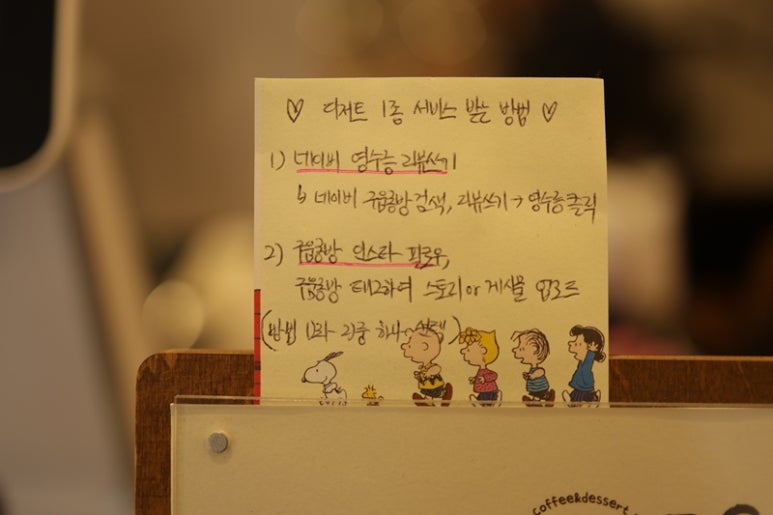 ♡ 디저트 1종 서비스 받는 방법 ♡
1) 네이버 영수증 리뷰쓰기
↳ 네이버 구움공방 검색, 리뷰쓰기 → 영수증 클릭
2) 구움공방 인스타 팔로우,
구움공방 태그하여 스토리 or 게시물 업로드
(방법 1)과 2)중 하나 선택)
coffee&dessert